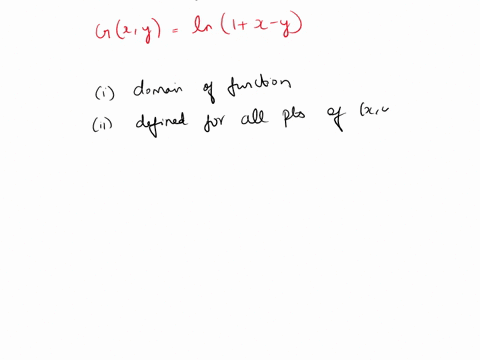 G(x,y) = ln(1+x-y)
(i) domain of function
(ii) defined for all pts of (x,